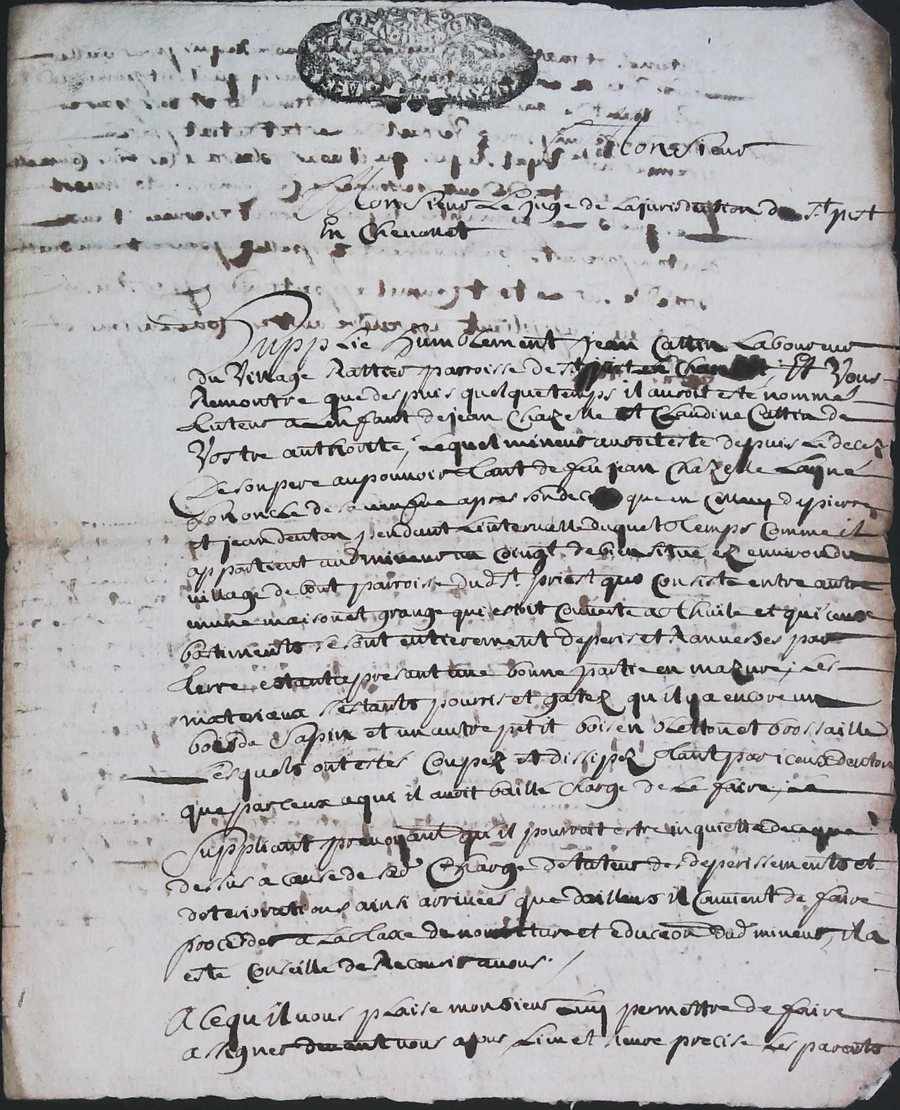 GEN. DE LION
Monsieur
Monsieur Le Juge de La jurisdiction de St prt
En Chevallet
Supplie humblement jean Cattin Laboureur
du Village Rattier parroisse de St Et Vous
Remontre que despuis quelque temps il auroit esté nommé
tuteur a Lenfant de jean Chazelle et Claudine Cattin de
Vostre authorité, Lequel mineur auroit esté depuis Le decez
De son pere au pouvoir tant de feu jean Chazelle Layné
son oncle de apres son que en Celluy de pierre
et jean denton pendant Lintervalle duquel temps Comme il
appartient aud mineur un Coing de bien situé Ez environ du
village de bout parroisse dud St priest quy Consiste entre autre
en une maison et grange qui estoit Couverte a Thuile et qui iceux
bastiments se sont entierement deperis et Ranversés par
terre estant a presant une bonne partie en mazure, Les
materiaux sestants pourris et gatez qu il y a encore un
bois de sapin et un autre petit bois en et brossaille
Lesquels ont estés Coupez et dissipez tant par iceux denton
que par Ceux a qui il avoit baillé Charge de Le faire, Le
Suppliant prevoyant qu il pourroit estre inquietté de ce que
dessus a cause de sad Charge de tuteur des deperissements et
deteriorations ainsi arrivées que dailleurs il Convient de faire
proceder a La taxe de nourriture et educaon dud mineur, il a
esté Conseillé de Recourir a vous.
A Ce qu il vous plaise monsieur Luy permettre de faire
assigner devant vous a jour Lieu et heure precise Les parents